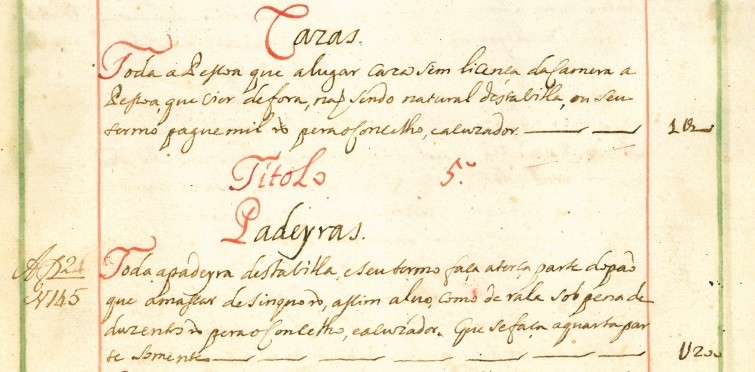 Cazas.
Toda a Pessoa que alugar caza sem licença da Camera a
Pessoa, que vier de fora, não sendo natural desta billa, ou seu
termo pague mil rs pera o Conselho, e acuzador.
Titolo 5.º
Padeyras.
Toda a padeyra desta billa, e seu termo faça a terça parte do pão
que amassar de sinquo rs, assim aluo, como de rala sob pena de
duzentos rs pera o Conselho, e acuzador. Que se faça a quarta par
te somente
U200